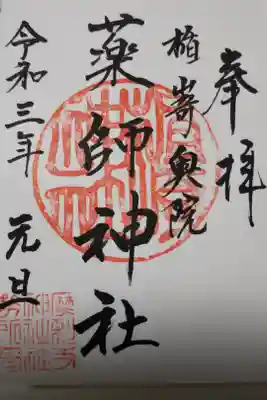 奉拝
楯嵜奥院
薬師神社
令和三年 元旦